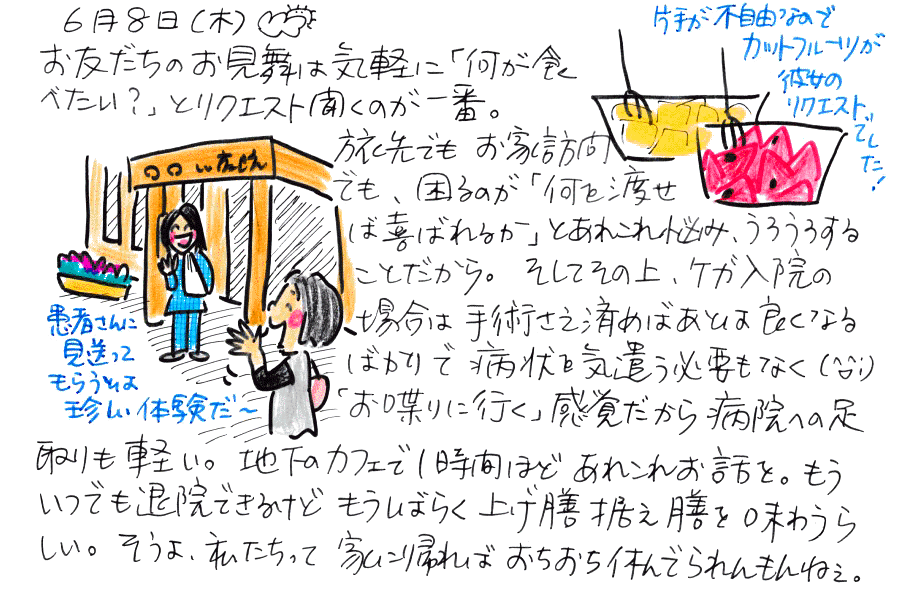 6月8日(木)
お友だちのお見舞は気軽に「何が食
べたい?」とリクエスト聞くのが一番。
片手が不自由なので
カットフルーツが
彼女の
リクエスト
でした!
旅先でもお家訪問
でも、困るのが「何を渡せ
ば喜ばれるか」とあれこれ悩み、うろうろする
ことだから。そしてその上、ケガ入院の
場合は手術さえ済めばあとは良くなる
ばかりで病状を気遣う必要もなく(^^;)
「お喋りに行く」感覚だから病院への足
取りも軽い。地下のカフェで1時間ほどあれこれお話を。もう
いつでも退院できるけどもうしばらく上げ膳据え膳を味わうら
しい。そうよ、私たちって家に帰ればおちおち休んでられんもんねぇ。
○○びょういん
患者さんに
見送って
もらうとは
珍しい体験だ〜